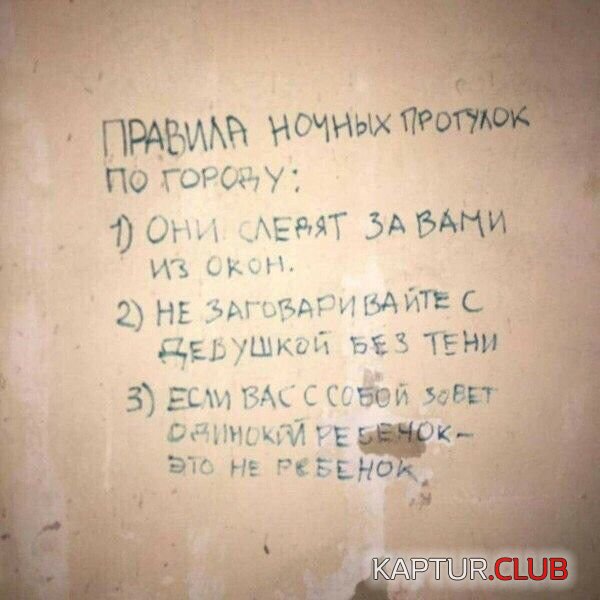 ПРАВИЛА НОЧНЫХ ПРОГУЛОК
ПО ГОРОДУ:
1) ОНИ СЛЕДЯТ ЗА ВАМИ
ИЗ ОКОН.
2) НЕ ЗАГОВАРИВАЙТЕ С
ДЕВУШКОЙ БЕЗ ТЕНИ
3) ЕСЛИ ВАС С СОБОЙ ЗОВЕТ
ОДИНОКИЙ РЕБЕНОК-
ЭТО НЕ РЕБЕНОК.
KAPTUR.CLUB